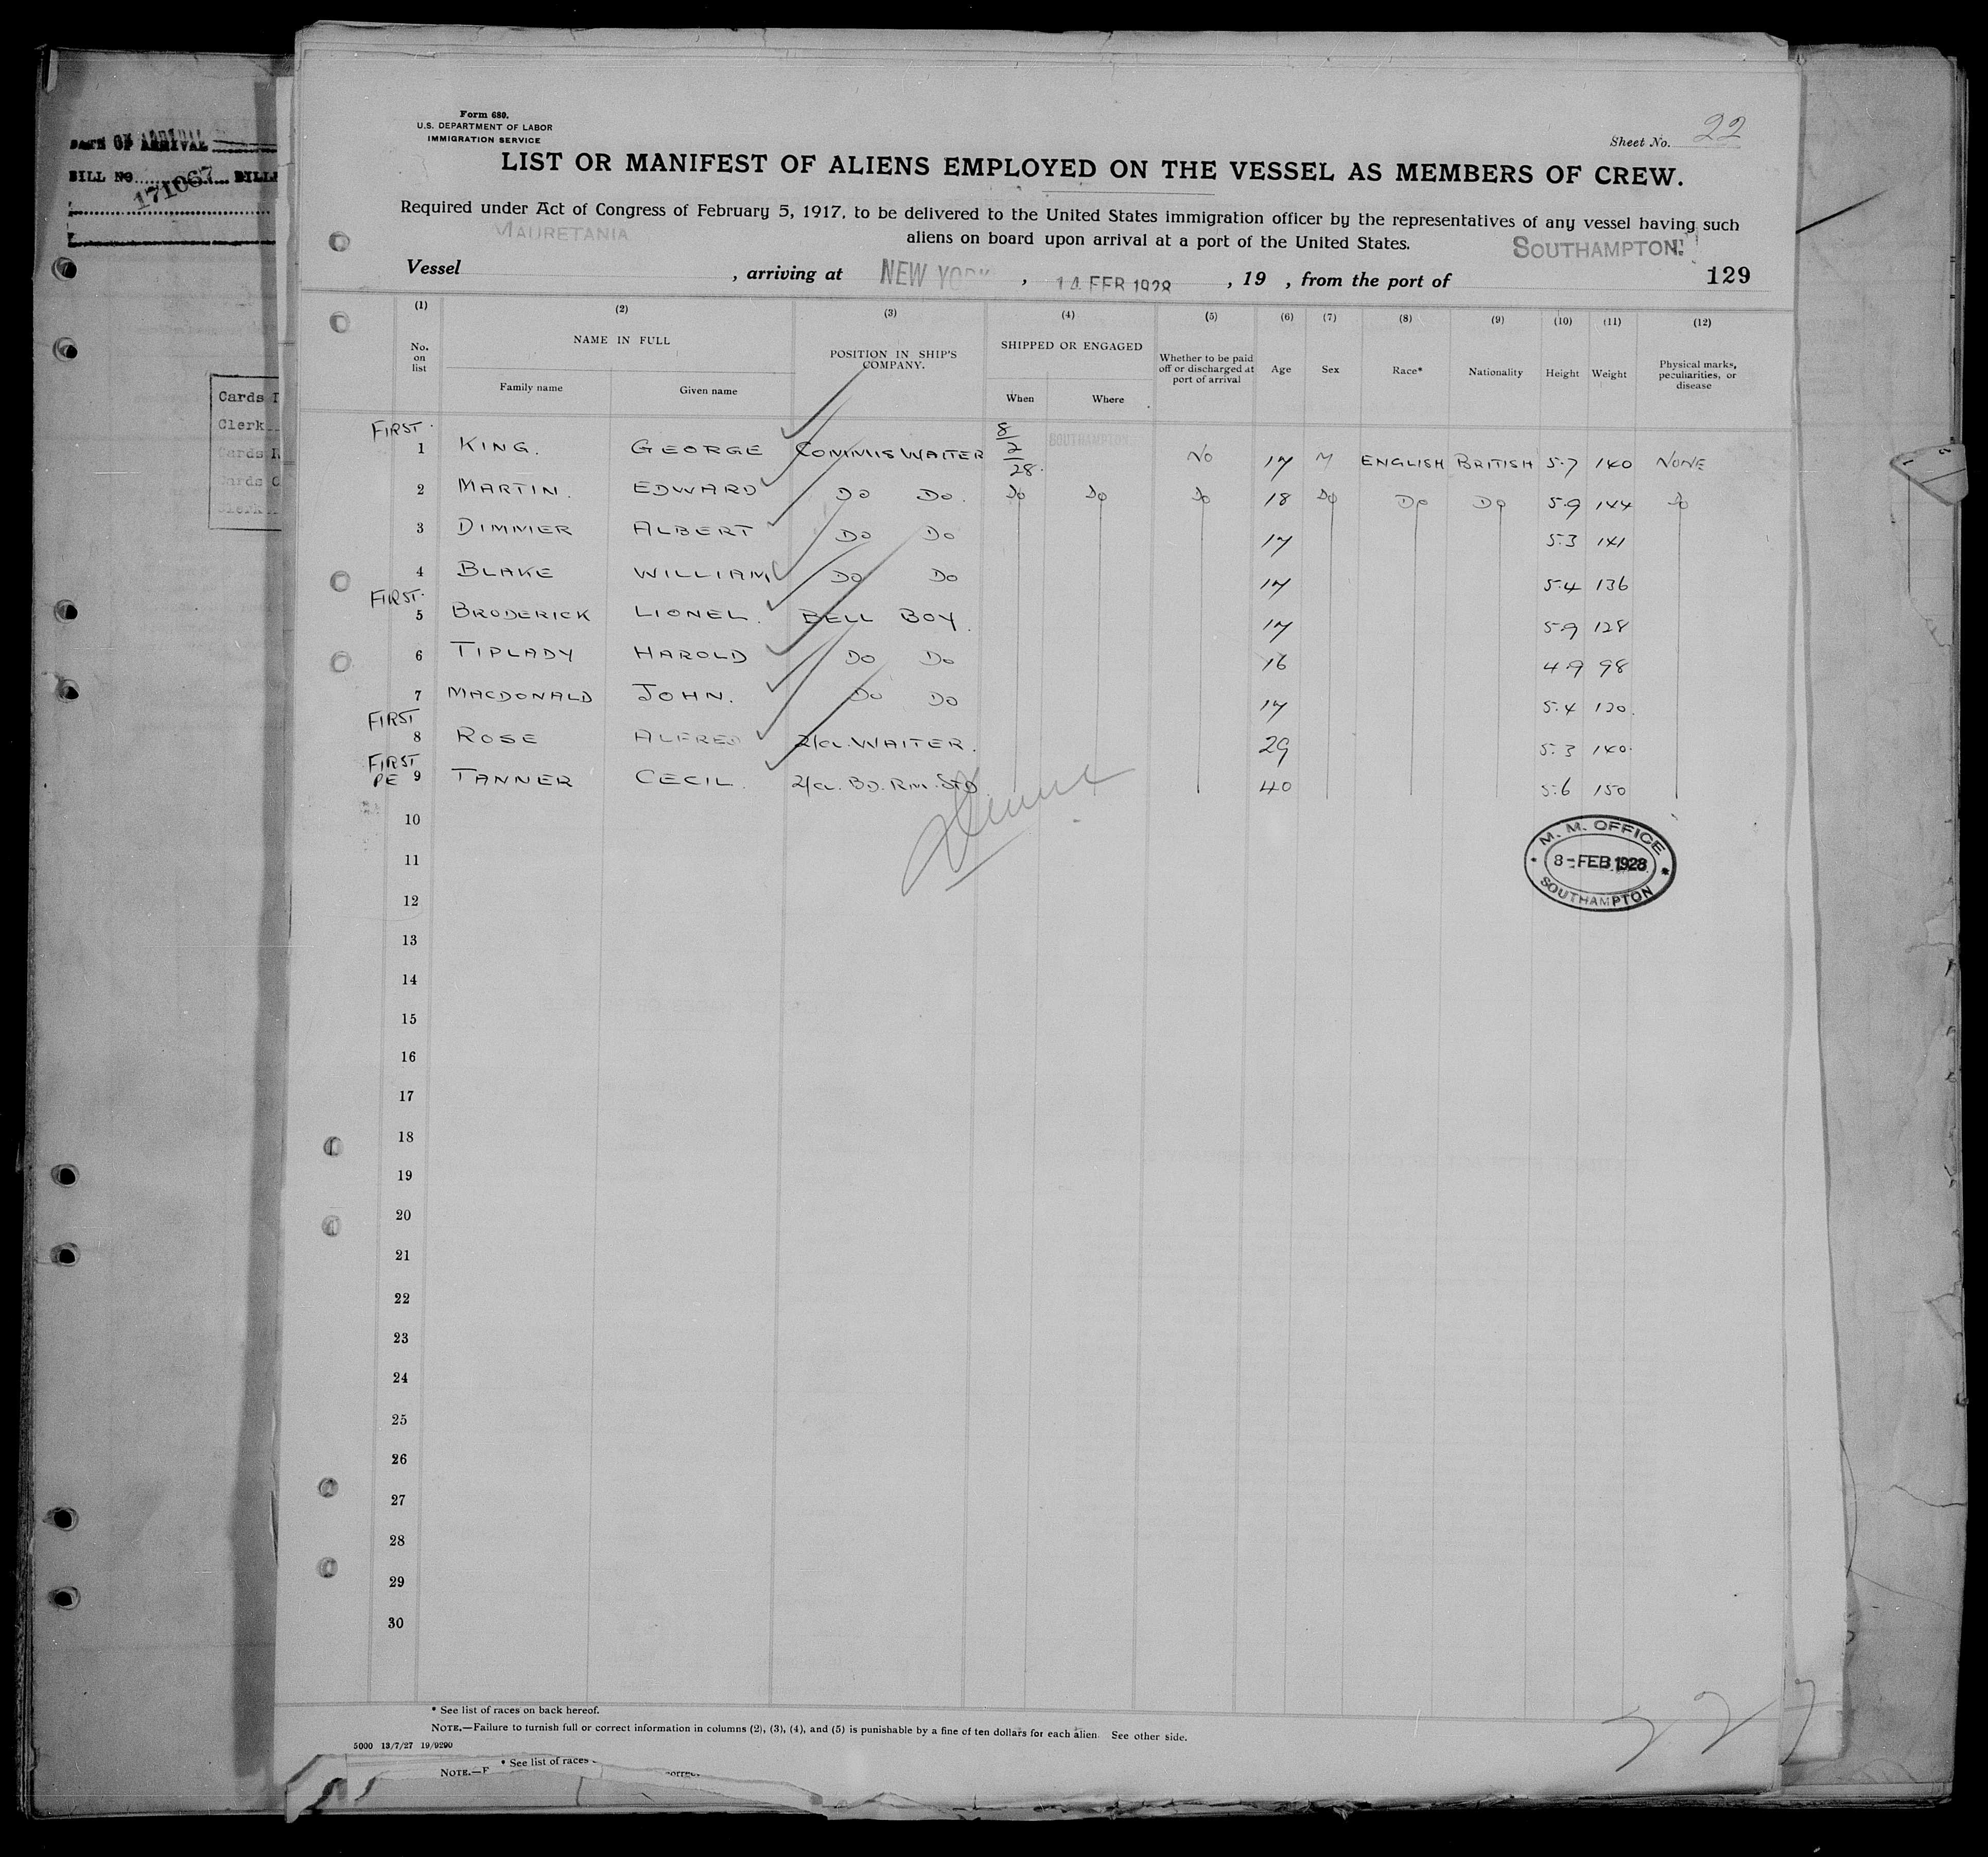 DATE OF ARRIVAL
BILL NO.
171067
Cards
Clerk
Cards
Cards
Clerk
Form 680.
U.S. DEPARTMENT OF LABOR
IMMIGRATION SERVICE
Sheet No. 22
LIST OR MANIFEST OF ALIENS EMPLOYED ON THE VESSEL AS MEMBERS OF CREW.
Required under Act of Congress of February 5, 1917, to be delivered to the United States immigration officer by the representatives of any vessel having such
aliens on board upon arrival at a port of the United States.
MAURETANIA
SOUTHAMPTON.
Vessel , arriving at NEW YORK , 14 FEB 1928 , 19 , from the port of 129
(1) (2) (3) (4) (5) (6) (7) (8) (9) (10) (11) (12)
No. on list NAME IN FULL POSITION IN SHIP'S COMPANY. SHIPPED OR ENGAGED Whether to be paid off or discharged at port of arrival Age Sex Race* Nationality Height Weight Physical marks, peculiarities, or disease
Family name Given name When Where
FIRST
1 KING. GEORGE COMMIS WAITER 8/2/28. SOUTHAMPTON No 17 M ENGLISH BRITISH 5.7 140 NONE
2 MARTIN. EDWARD Do Do. Do Do Do 18 Do Do Do 5.9 144 Do
3 DIMMER ALBERT Do Do 17 5.3 141
4 BLAKE WILLIAM Do Do 17 5.4 136
FIRST.
5 BRODERICK LIONEL. BELL BOY. 17 5.9 128
6 TIPLADY HAROLD Do Do 16 4.9 98
7 MACDONALD JOHN. Do Do 17 5.4 120.
FIRST
8 ROSE ALFRED 2/CL. WAITER. 29 5.3 140.
FIRST
PE 9 TANNER CECIL. 2/CL. BD. RM. STD. 40 5.6 150
10
11
12
M. M. OFFICE
8-FEB 1928
SOUTHAMPTON
13
14
15
16
17
18
19
20
21
22
23
24
25
26
27
28
29
30
* See list of races on back hereof.
NOTE.—Failure to furnish full or correct information in columns (2), (3), (4), and (5) is punishable by a fine of ten dollars for each alien. See other side.
5000 13/7/27 19/9290
* See list of races
NOTE.—F